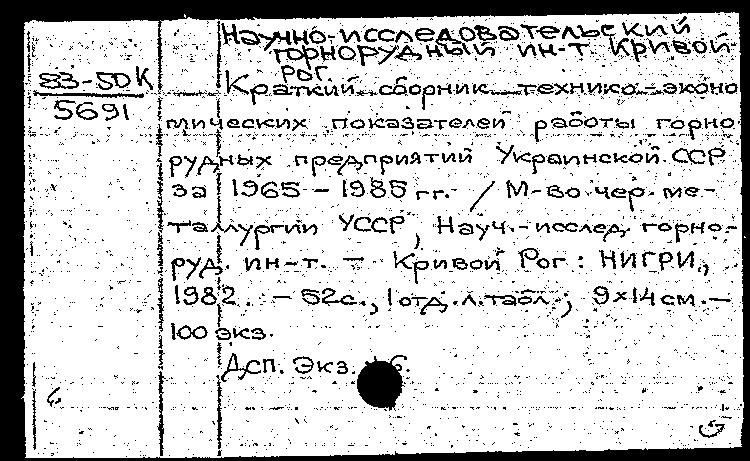 Научно-исследовательский
горнорудный ин-т. Кривой
Рог.
83-5ДК
5691
Краткий сборник технико-эконо
мических показателей работы горно
рудных предприятий Украинской ССР
за 1965 - 1985 гг. / М-во чер. ме-
таллургии УССР, Науч.-исслед. горно-
руд. ин-т. - Кривой Рог: НИГРИ,
1982. - 52с., 1 отд. л. табл.; 9×14 см. -
100 экз.
Дсп. Экз. 6.